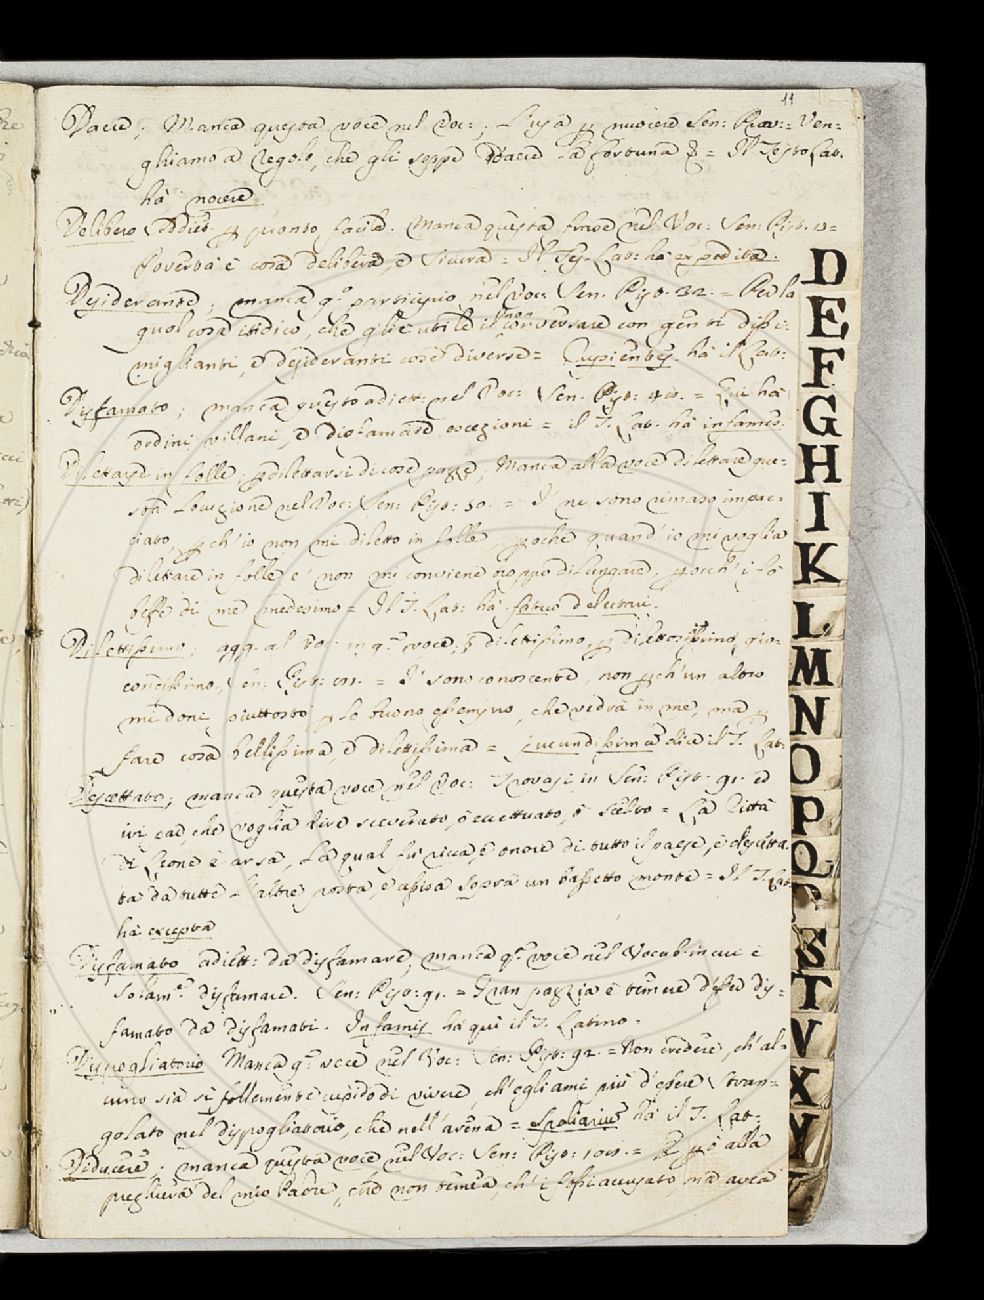 11
Dacie; Manca questa voce nel Voc:; L'usa p nuocere Sen: Ven-
ghiamo a Regolo, che gli seppe dacie la fortuna = Il Testo Lat.
ha nocere
Delibero Addiet. p pronto, facile. Manca questa finoe nel Voc: Sen: Pist.
Poverta è cosa delibera, e sicura = Il Tes. Lat: ha expedita.
Desiderante; manca q.o participio nel Voc: Sen. Pist. 32. = Per la
qual cosa ti dico, che gli è utile il non conversare con genti dissi-
miglianti, e desideranti cose diverse = Cupientes. ha il Lat:
Disfamato; manca questo adiett: nel Voc: Sen. Pist: = Qui ha
ordini villani, e disfamate eccezioni = il T. Lat. ha infames.
Diletarsi in folle; p dilettarsi di cose pazze; Manca alla voce dilettare que-
sta locuzione nel Voc: Sen: Pist: 50. = I' ne sono rimaso impac-
ciato, p ch'io non mi diletto in folle, poche quand'io mi voglia
dilettare in folle e' non mi conviene troppo dilungare, pocch' i fo
beffe di me medesimo = Il T. Lat: ha fatuo delectari.
Dilettissimo; agg. al Voc: in q.a voce, dilettissimo, p dilettosissimo, gio-
condissimo, Sen: Pist: = I' sono conoscente, non p ch'un altro
mi doni piuttosto p lo buono essempro, che vedrà in me, ma p
fare cosa bellissima, e dilettissima = jucundissima dice il T. Lat.
Descettato; manca questa voce nel Voc: Trovasi in Sen: Pist. 91. ed
ivi pae, che voglia dire sceverato, o eccettuato, o scelto = La Città
di Leone è arsa, La qual fu ricca, e onore di tutto il paese, e descetta-
ta da tutte l'altre posta, e assisa sopra un bassetto monte = Il T. Lat.
ha excepta
Disfamato adiett: da disfamare, manca q.a voce nel Vocab. in cui è
solam.e disfamare. Sen: Pist: 91. = Gran pazzia è temere d'esser dis-
famato da disfamati. Infamis ha qui il T. Latino.
Dispogliatoio Manca q.a voce nel Voc: Sen: Pist: 92. = Non credere, ch'al-
cuno sia sì follemente cupido di vivere, ch'egli ami più d'essere stran-
golato nel dispogliatoio, che nell'arena = Spoliario ha il T. Lat:
Diducere; manca questa voce nel Voc: Sen: Pist: = E p è alla
preghiera del mio Padre, che non temea, ch'i fossi accusato, ma avea
D
E
F
G
H
I
K
L
M
N
O
P
Q
S
T
V
X
Y